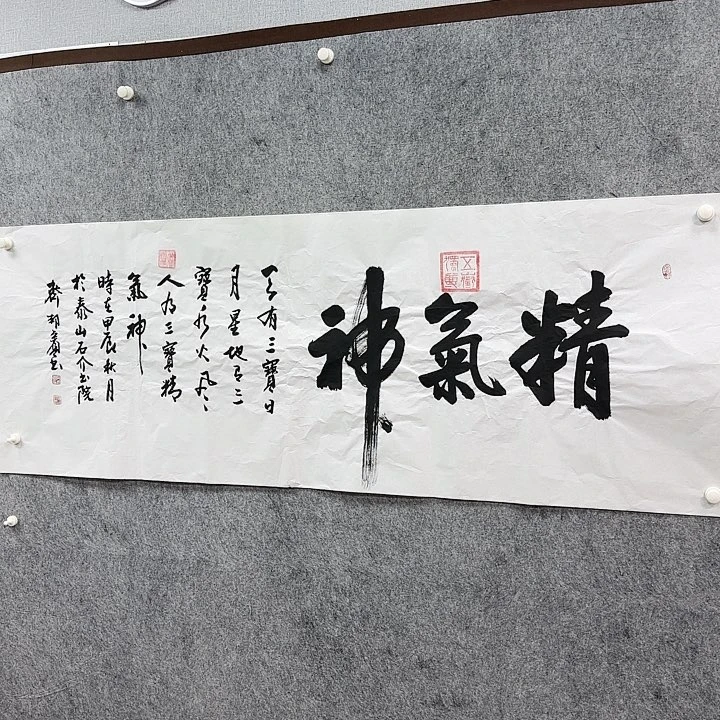 精氣神
天有三寶日
月星地有三
寶水火風
人有三寶精
氣神
時在甲辰秋月
於泰山石介書院